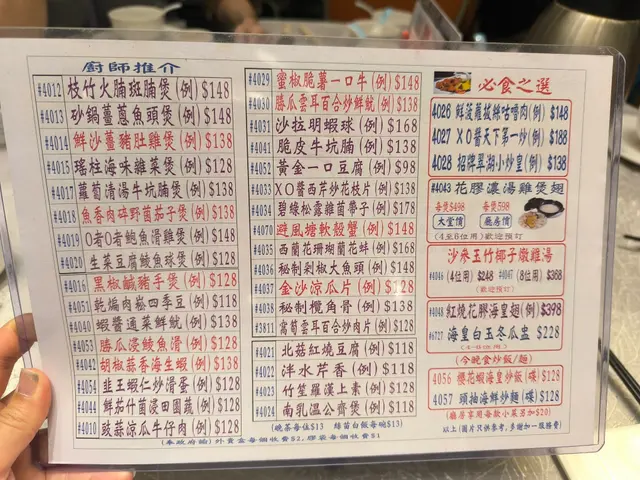 廚師推介
#4012 枝竹火腩斑腩煲(例) $148
#4013 砂鍋薑蔥魚頭煲(例) $148
#4014 鮮沙薑豬肚雞煲(例) $138
#4015 瑤柱海味雜菜煲(例) $128
#4017 蘿蔔清湯牛坑腩煲(例) $138
#4018 魚香肉碎野菌茄子煲(例) $138
#4019 O者O者鮑魚滑雞煲(例) $148
#4020 生菜豆腐鯪魚球煲(例) $128
#4016 黑椒鹹豬手煲(例) $128
#4051 乾煸肉崧四季豆(例) $118
#4040 蝦醬通菜鮮魷(例) $138
#4053 勝瓜浸鯪魚滑(例) $128
#4042 胡椒蒜香海生蝦(例) $138
#4054 韭王蝦仁炒滑蛋(例) $128
#4044 鮮茄什菌浸田園蔬(例) $128
#4010 豉蒜涼瓜牛仔肉(例) $128
#4029 蜜椒脆薯一口牛(例) $148
#4030 勝瓜雲耳百合炒鮮魷(例) $138
#4031 沙拉明蝦球(例) $168
#4041 脆皮牛坑腩(例) $138
#4052 黃金一口豆腐(例) $98
#4033 XO醬西芹炒花枝片(例) $138
#4034 碧綠松露雜菌帶子(例) $178
#4070 避風塘軟殼蟹(例) $148
#4035 西蘭花珊瑚蘭花蚌(例) $168
#4036 秘制剁椒大魚頭(例) $148
#4037 金沙涼瓜片(例) $128
#4038 秘制欖角骨(例) $138
#3811 萵筍雲耳百合炒肉片(例) $128
#4021 北菇紅燒豆腐(例) $118
#4022 泮水芹香(例) $118
#4023 竹笙羅漢上素(例) $128
#4024 南乳溫公齋煲(例) $118
(晚茶每位$13 絲苗白飯每碗$13)
(奉政府諭)外賣盒每個收費$2,膠袋每個收費$1
必食之選
4026 鮮菠蘿拔絲咕嚕肉(例) $148
4027 XO醬天下第一炒(例) $188
4028 招牌翠湖小炒皇(例) $138
#4043 花膠濃湯雞煲翅
每煲$498 每煲$598
大堂價 廳房價
(4至6位用)歡迎預訂
沙參玉竹椰子燉雞湯
#4046 (4位用) $248 #4047 (8位用) $368
(歡迎預訂)
#4048 紅燒花膠海皇翅(例) $398
#6727 海皇白玉冬瓜盅 $228
(4-6位用)
(今晚食炒飯/麵)
4056 櫻花蝦海皇炒飯(碟) $128
4057 頭抽海鮮炒麵(碟) $128
(廳房享用每款小菜另加$20)
以上(圖片只供參考,多謝加一服務費)